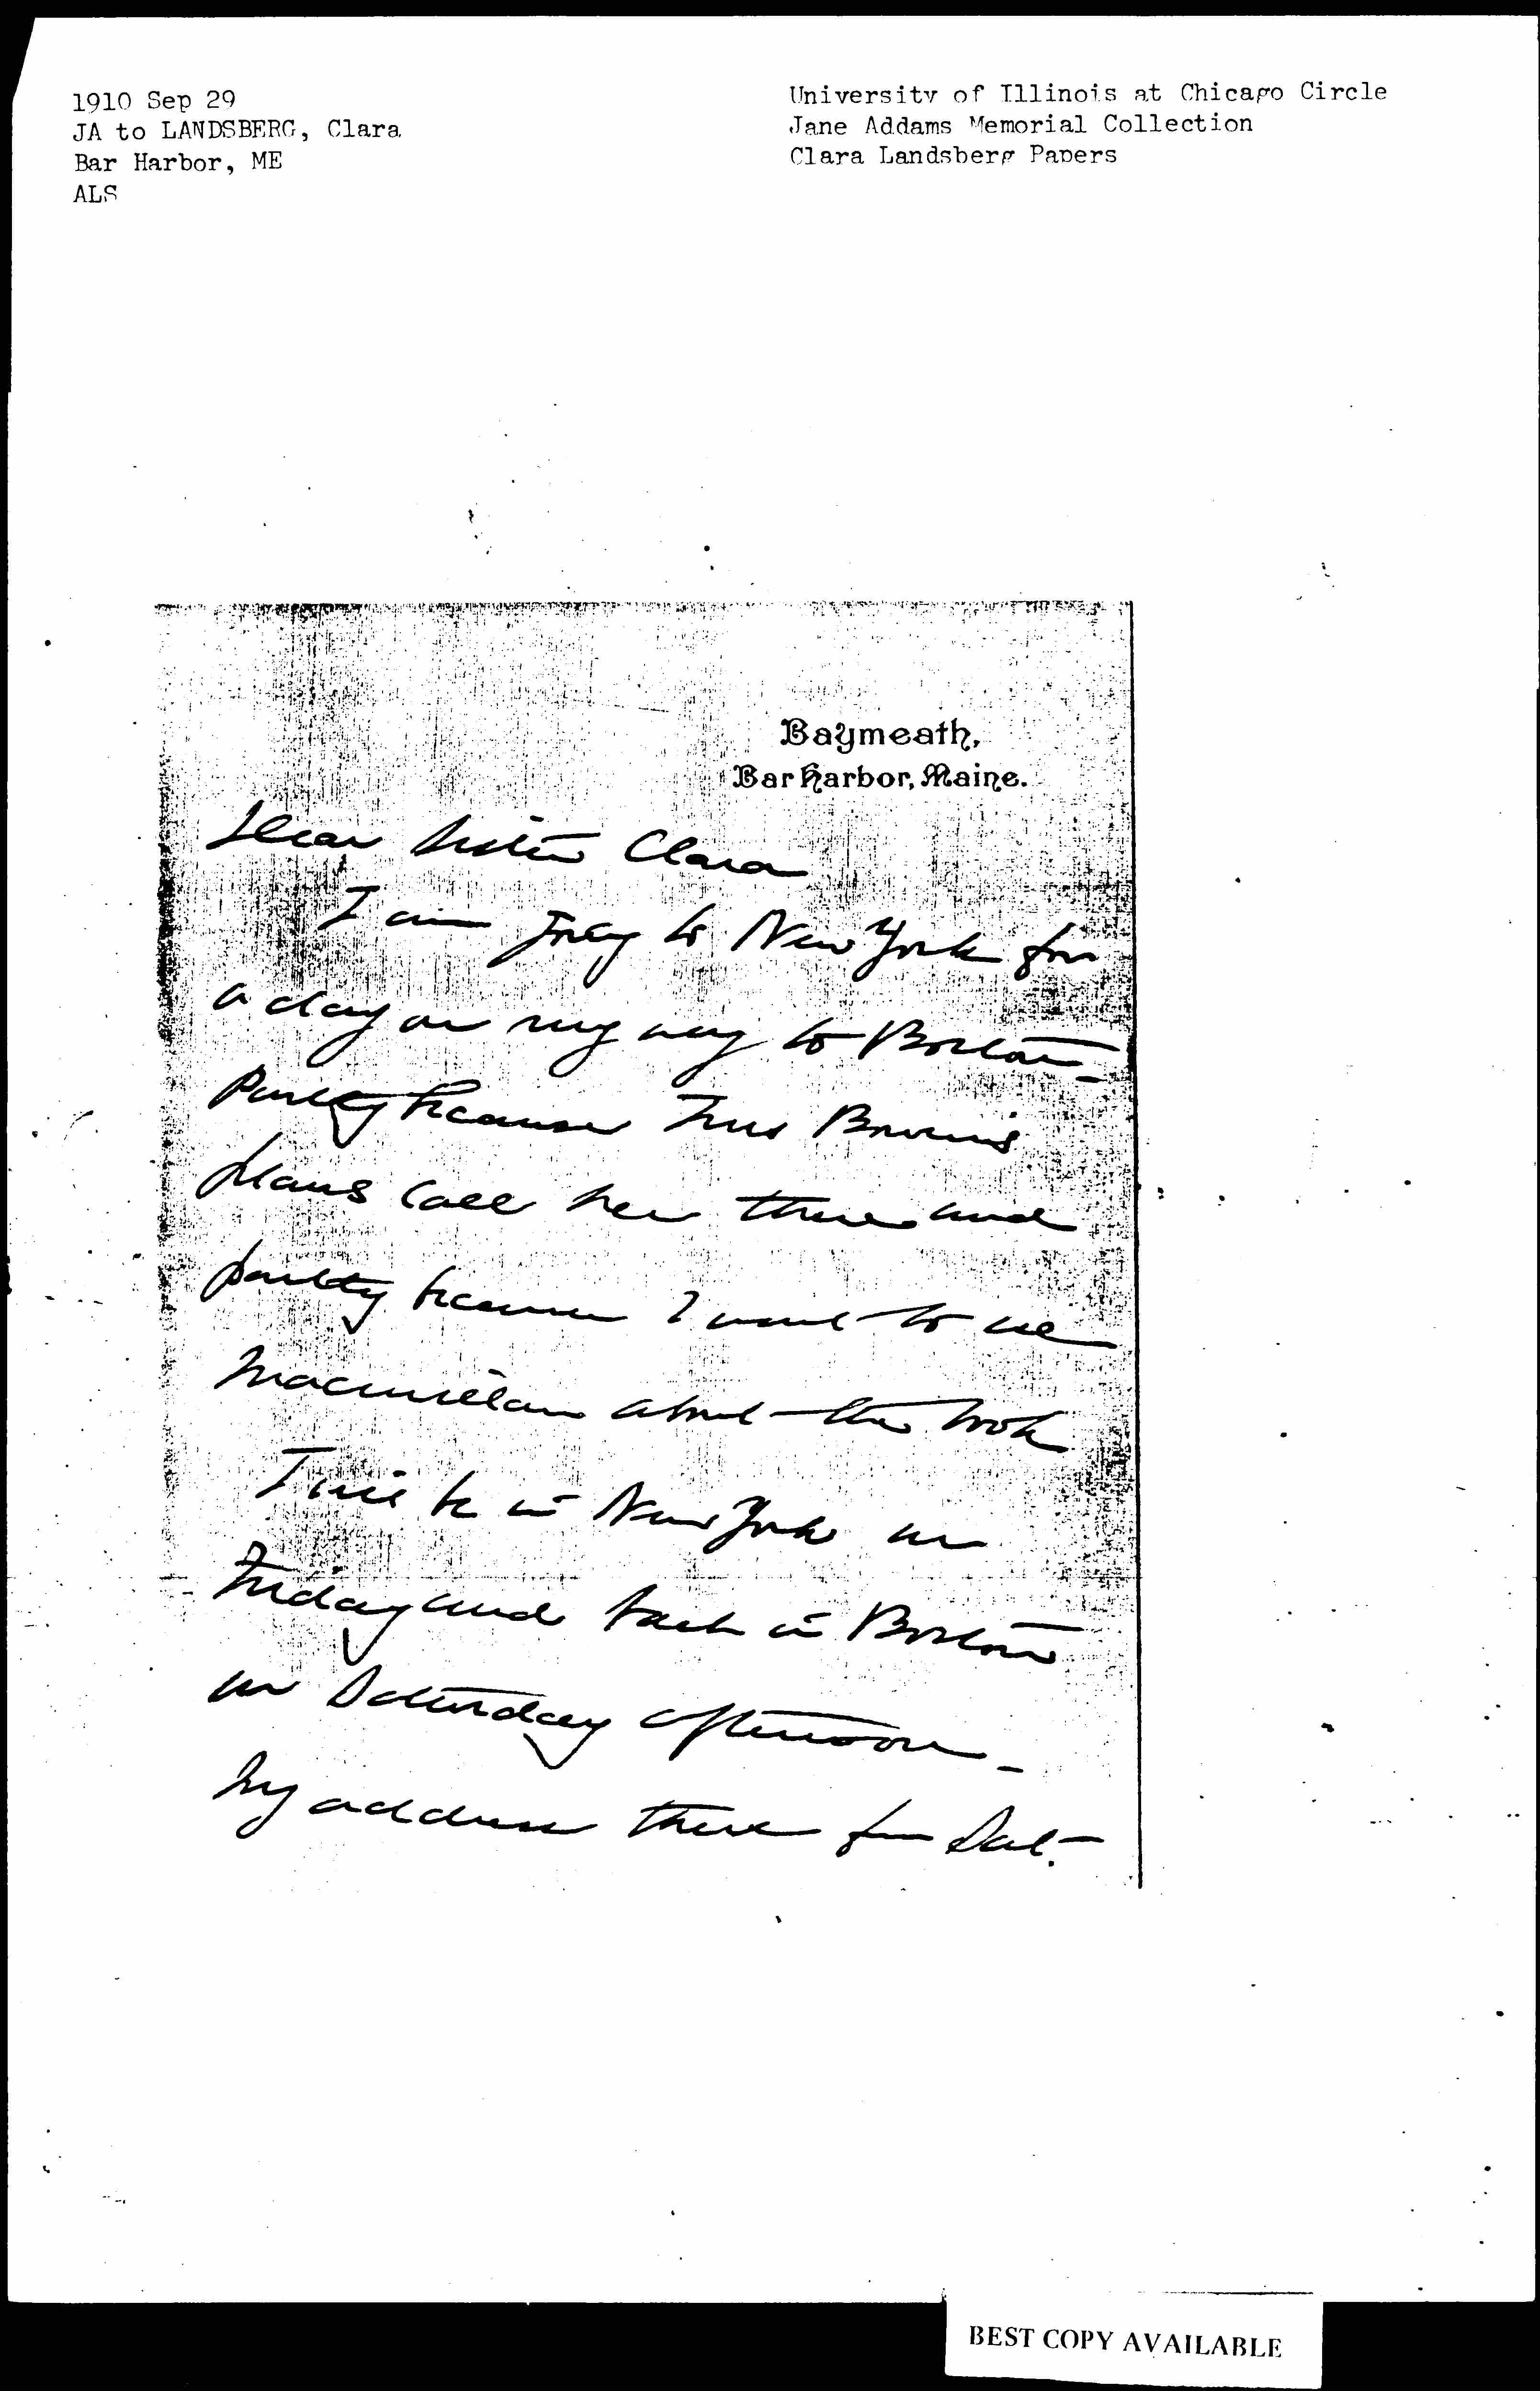 1910 Sep 29
JA to LANDSBERG, Clara
Bar Harbor, ME
ALS
University of Illinois at Chicago Circle
Jane Addams Memorial Collection
Clara Landsberg Papers
Baymeath,
Bar Harbor, Maine.
Dear Sister Clara
I am going to New York for
a day on my way to Boston -
Partly because Miss Bowen's
plans call her there and
partly because I want to see
Macmillan about the book
I will be in New York on
Friday and back in Boston
on Saturday afternoon -
My address there for Sat.-
BEST COPY AVAILABLE